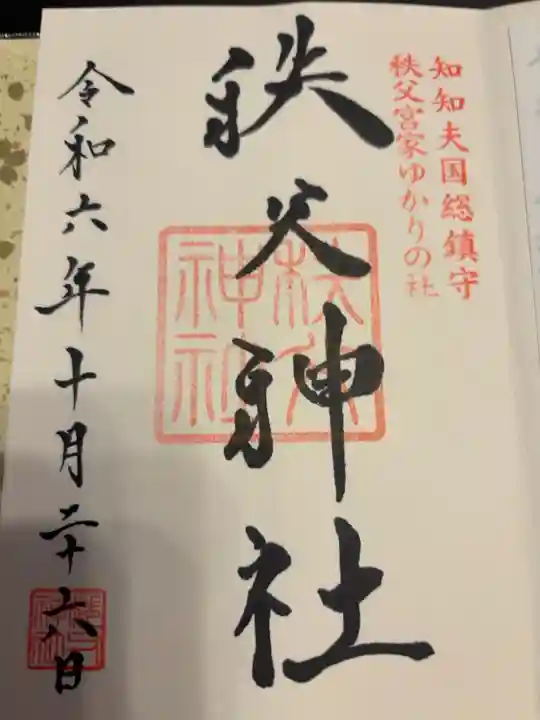 知知夫国総鎮守
秩父宮家ゆかりの社
秩父神社
秩父神社
令和六年十月二十六日